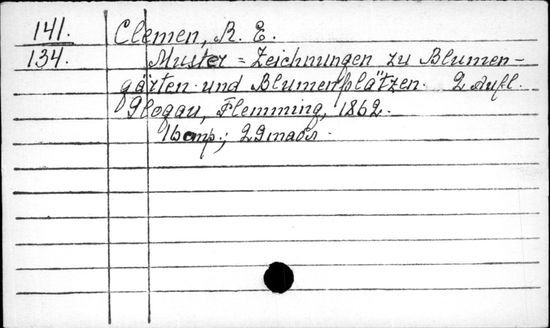 141.
Clemen, R. E.
134.
Muster = Zeichnungen zu Blumen-
gärten und Blumenplätzen. 2 Aufl.
Glogau, Flemming, 1862.
16 стр.;